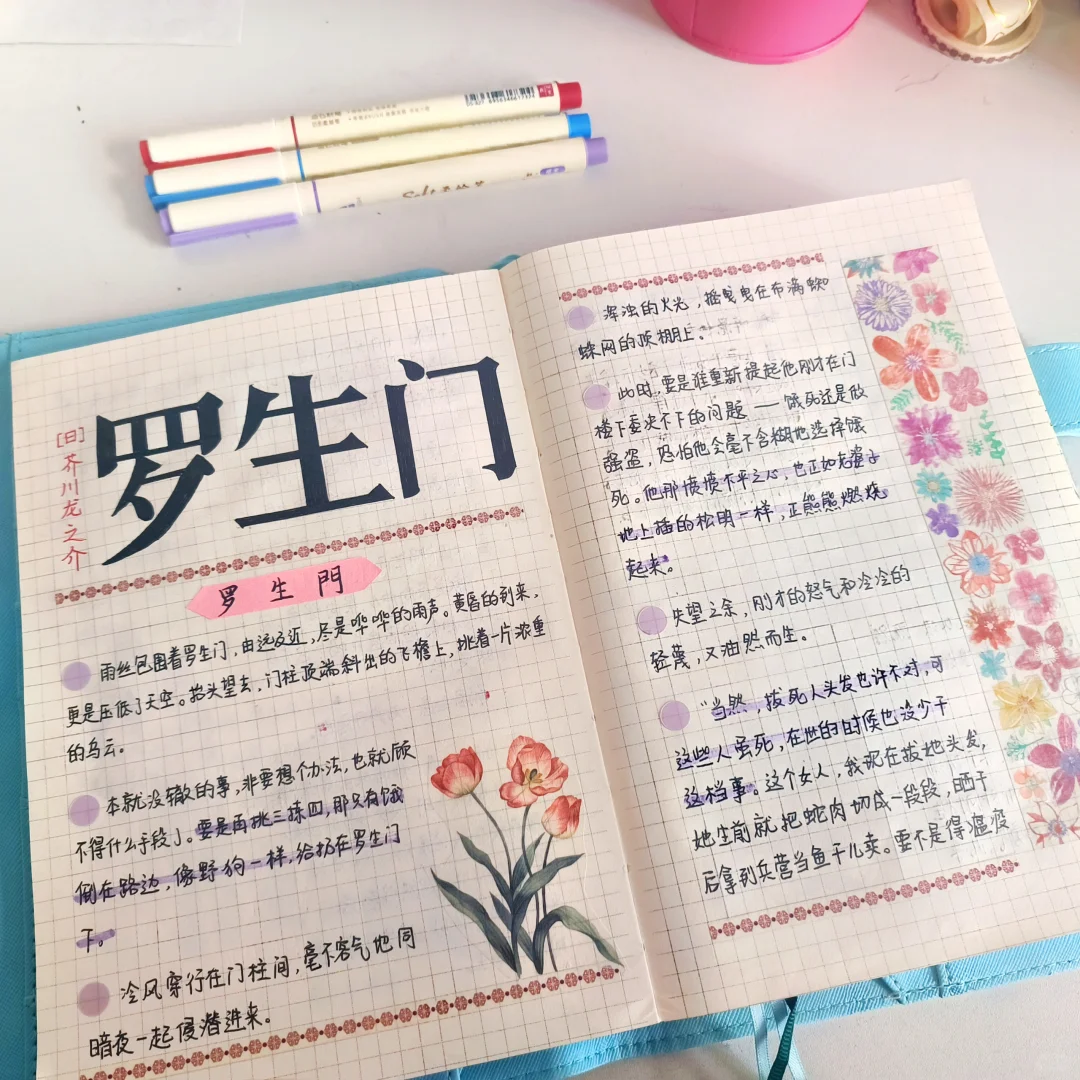 罗生门
[日]芥川龙之介
罗生門
雨丝包围着罗生门，由远及近，尽是哗哗的雨声。黄昏的到来，
更是压低了天空。抬头望去，门柱顶端斜出的飞檐上，挑着一片浓重
的乌云。
本就没辙的事，非要想个办法，也就顾
不得什么手段了。要是再挑三拣四，那只有饿
倒在路边，像野狗一样，给扔在罗生门
下。
冷风穿行在门柱间，毫不客气地同
暗夜一起侵潜进来。
浑浊的火光，摇曳曳在布满蜘
蛛网的顶棚上。
此时，要是谁重新提起他刚才在门
楼下委决不下的问题——饿死还是做
强盗，恐怕他会毫不含糊地选择饿
死。他那愤愤不平之心，也正如老婆子
地上插的松明一样，正熊熊燃烧
起来。
失望之余，刚才的怒气和冷冷的
轻蔑，又油然而生。
“当然，拔死人头发也许不对，可
这些人虽死，在世的时候也没少干
这档事。这个女人，我现在拔她头发，
她生前就把蛇肉切成一段段，晒干
后拿到兵营当鱼干儿卖。要不是得瘟疫